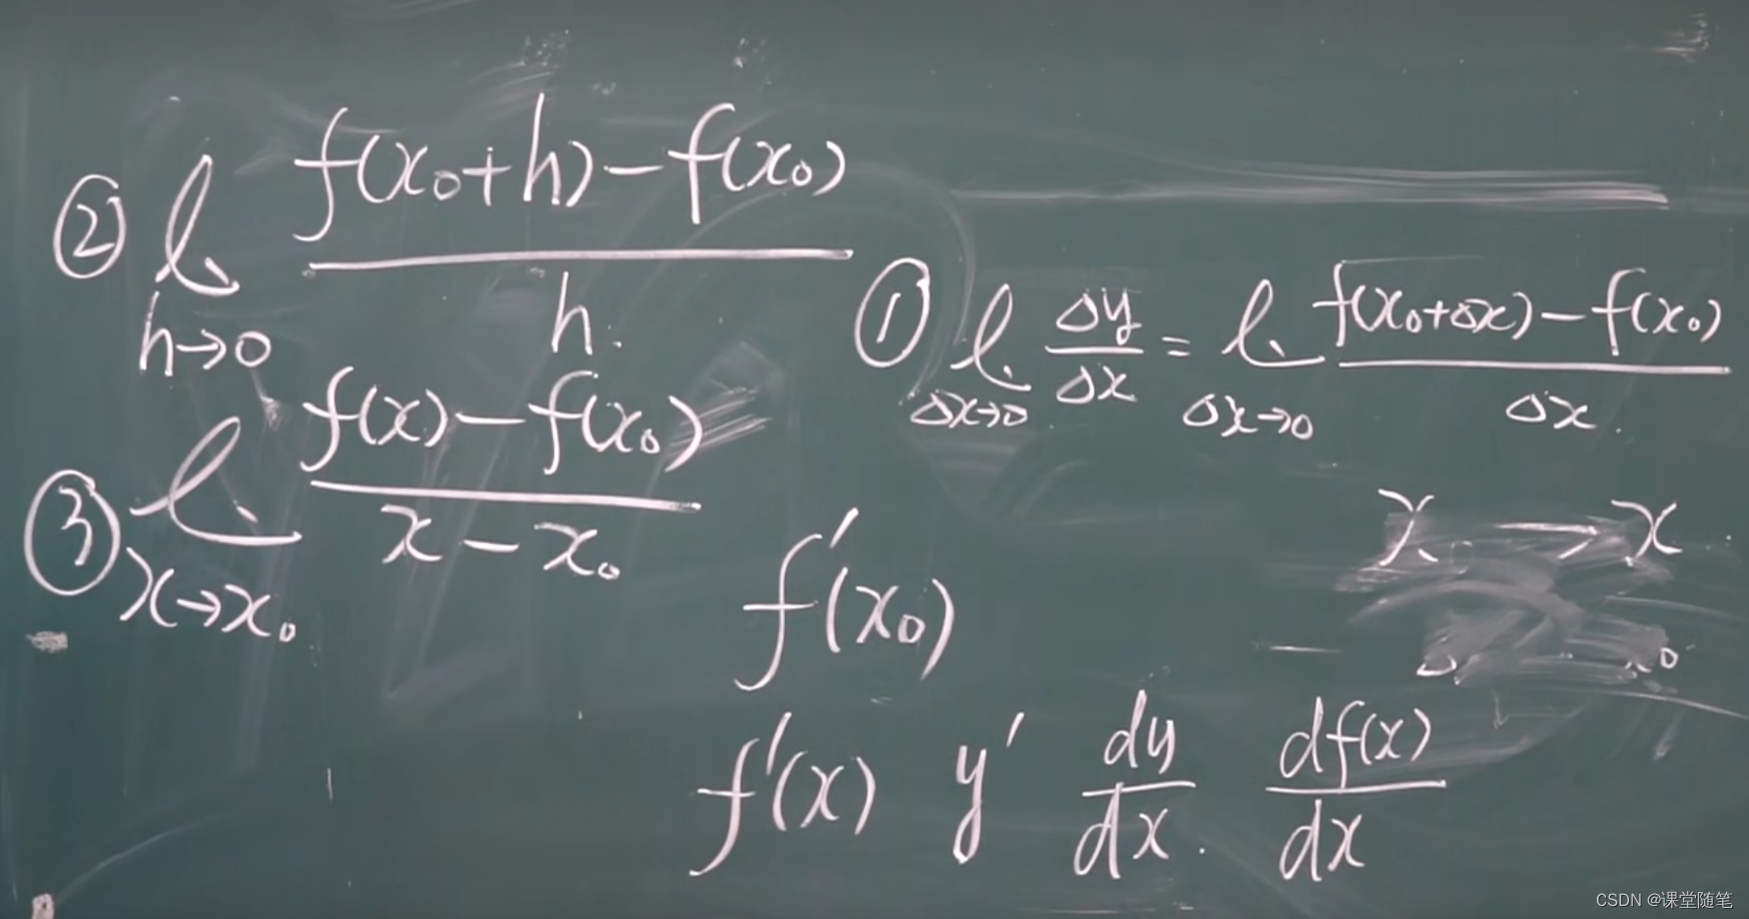 ② l h→0 f(x₀+h)-f(x₀) / h.
① l Δx→0 Δy/Δx = l Δx→0 f(x₀+Δx)-f(x₀) / Δx.
③ l x→x₀ f(x)-f(x₀) / x-x₀
x₀ → x
f'(x₀)
f'(x) y' dy/dx. df(x)/dx
CSDN @课堂随笔